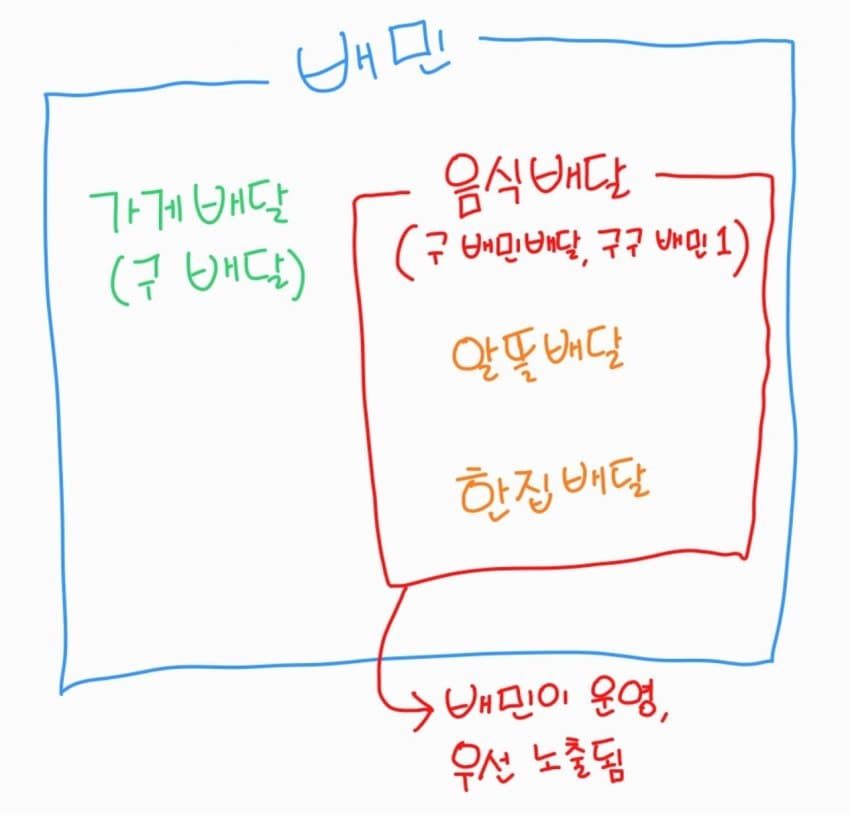 배민
가게배달
(구 배달)
음식배달
(구 배민배달, 구구 배민1)
알뜰배달
한집배달
배민이 운영,
우선 노출됨